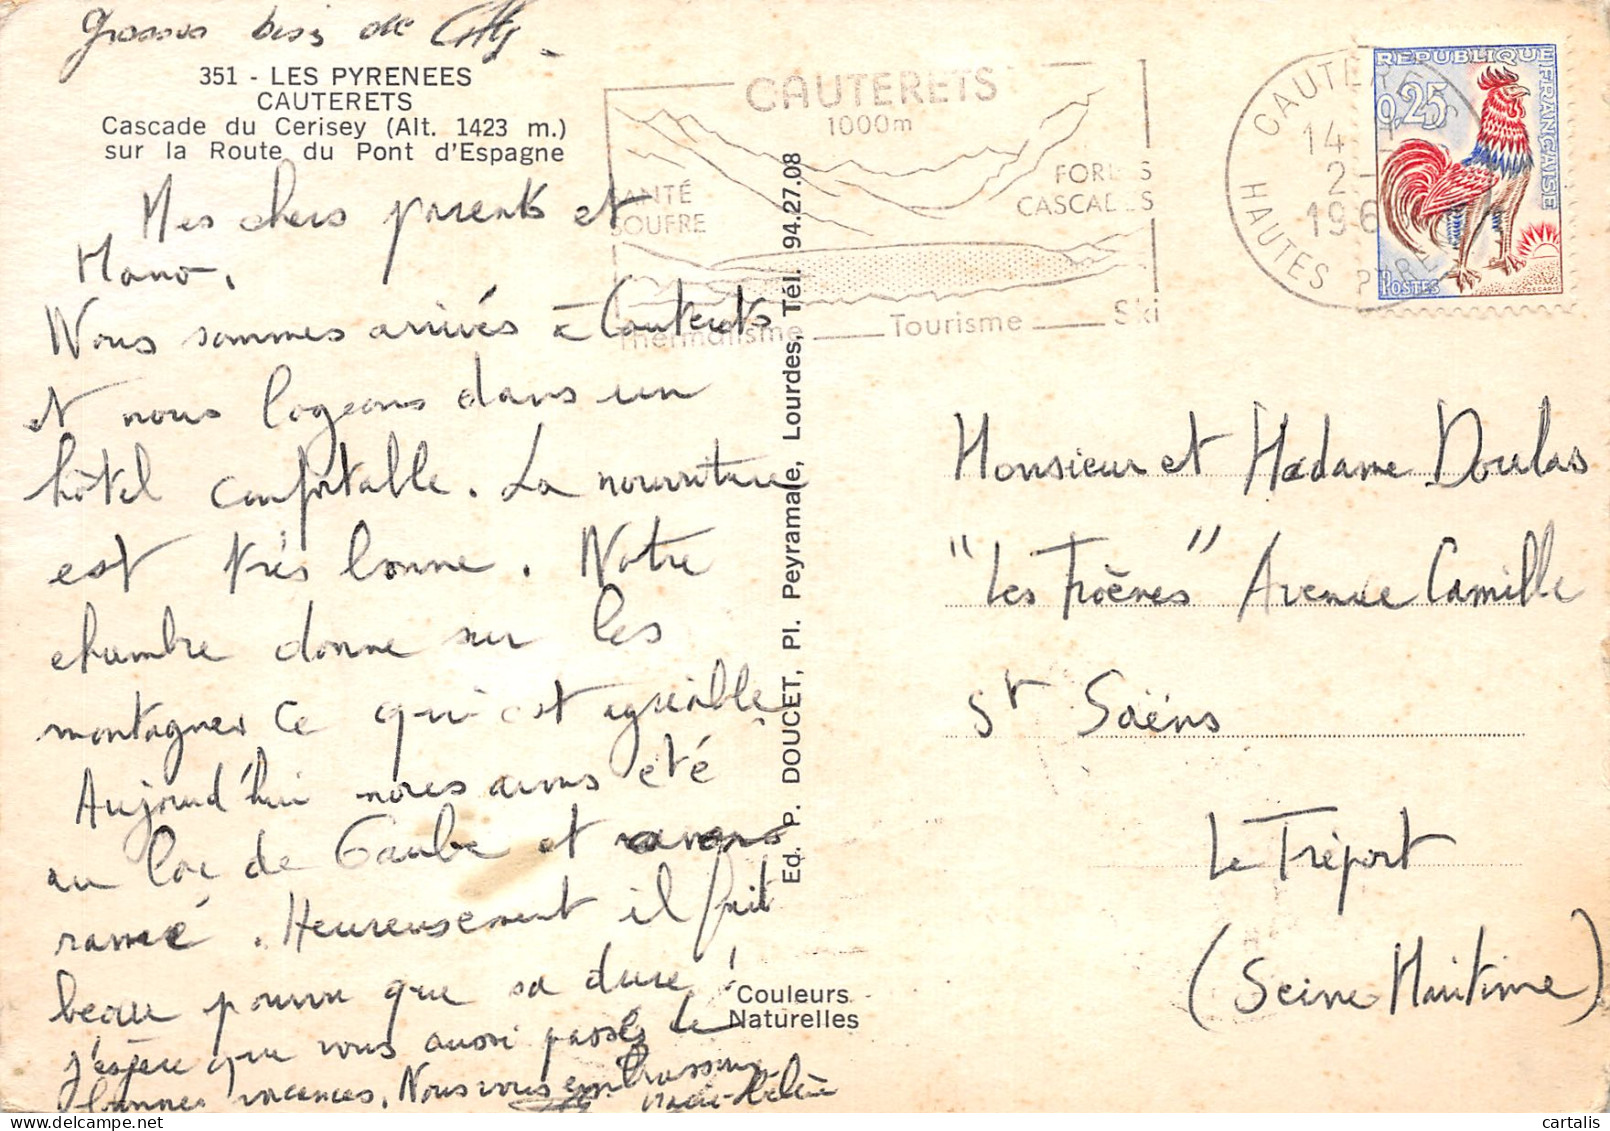 Grosses bises de
351 - LES PYRENEES
CAUTERETS
Cascade du Cerisey (Alt. 1423 m.)
sur la Route du Pont d'Espagne
Mes chers parents et
Mano,
Nous sommes arrivés à Cauterets
et nous logeons dans un
hôtel confortable. La nourriture
est très bonne. Notre
chambre donne sur les
montagnes ce qui est agréable.
Aujourd'hui nous avons été
au lac de Gaube et avons
ramé. Heureusement il fait
beau pourvu que sa dure !
j'espère que vous aussi passés de
bonnes vacances. Nous vous embrassons
Marie-Hélène
CAUTERETS
1000m
SANTÉ
SOUFRE
FORÊTS
CASCADES
Thermalisme — Tourisme — Ski
CAUTERETS
14
2-
196
HAUTES PYRÉ
REPUBLIQUE FRANÇAISE
0,25
POSTES
DECARIS
Ed. P. DOUCET, Pl. Peyramale, Lourdes, Tél. 94.27.08
Couleurs
Naturelles
Monsieur et Madame Doulas
"Les Troènes" Avenue Camille
St Saëns
Le Tréport
(Seine Maritime)
cartalis